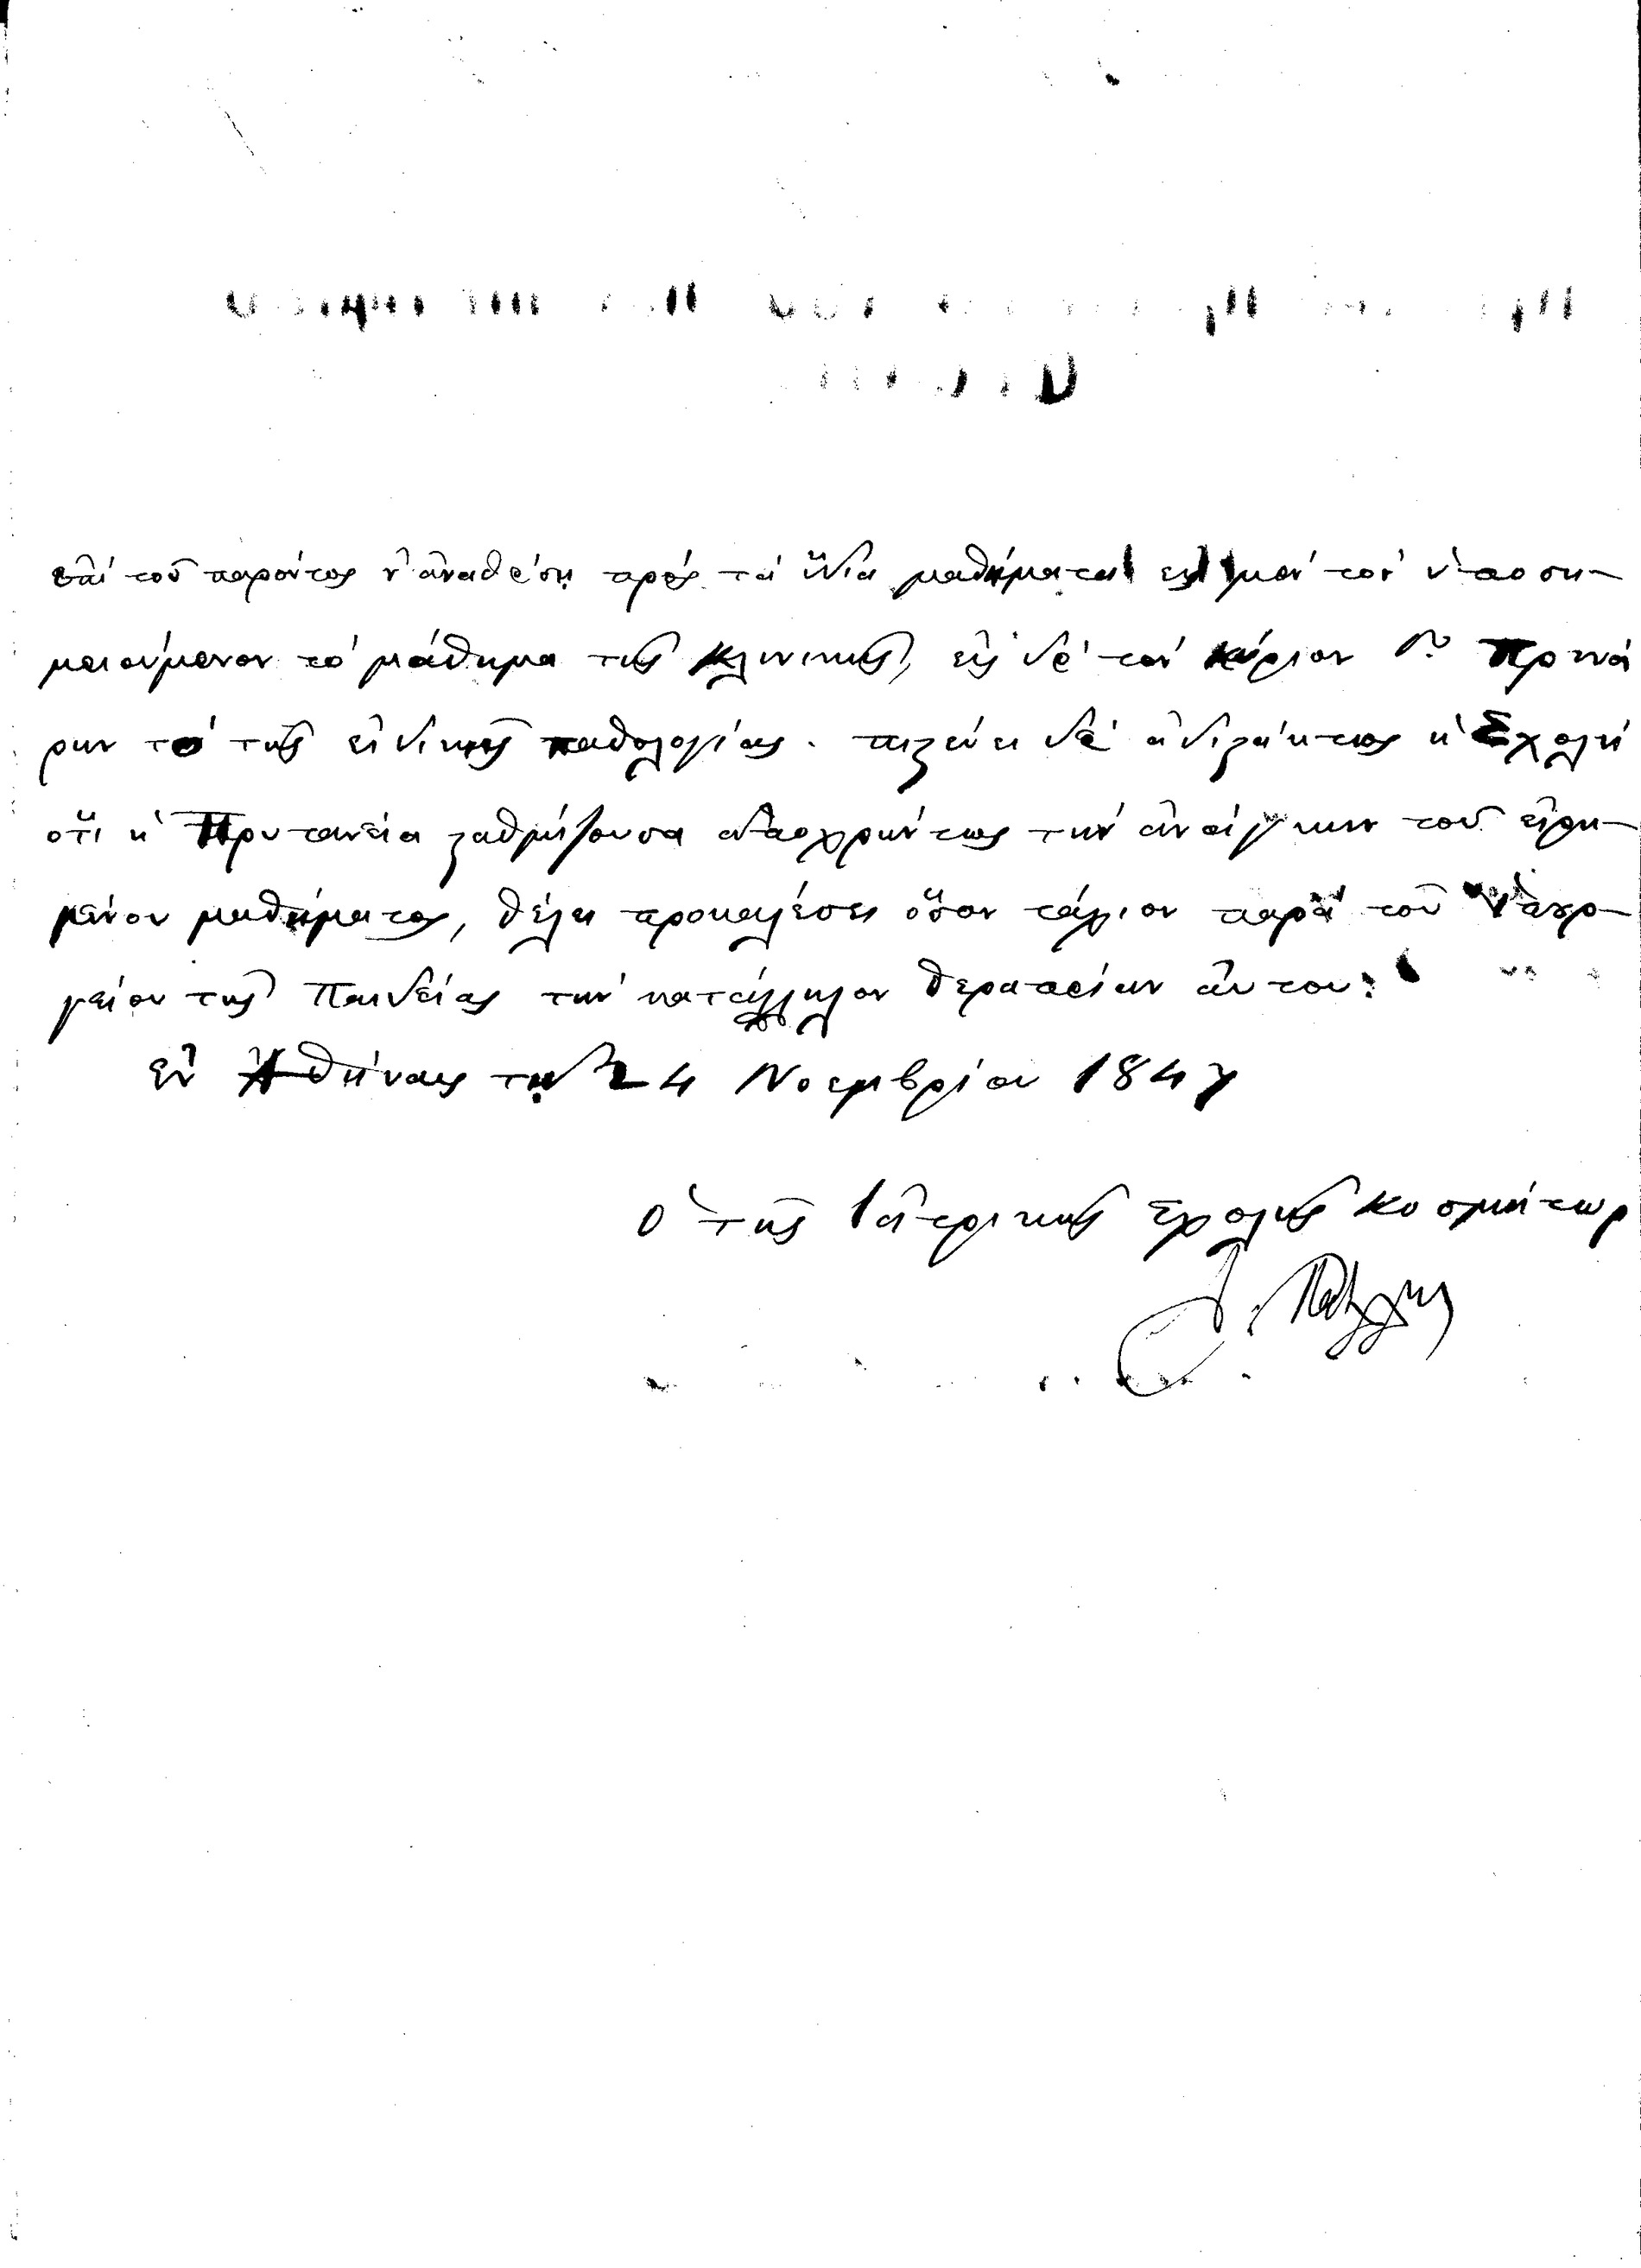 ἐπὶ τοῦ παρόντος ν' ἀναθέσῃ πρὸς τὰ ἴδια μαθήματα εἰς μὲν τὸν ὑποση-
μειούμενον τὸ μάθημα τῆς κλινικῆς, εἰς δὲ τὸν κύριον Πρινά
ρην τὸ τῆς εἰδικῆς παθολογίας. πιστεύει δὲ ἀδιστάκτως ἡ Σχολὴ
ὅτι ἡ Πρυτανεία σταθμίζουσα ἀποχρώντως τὴν ἀνάγκην τοῦ εἰρη-
μένου μαθήματος, θέλει προκαλέσει ὅσον τάχιον παρὰ τοῦ Ὑπουρ-
γείου τῆς Παιδείας τὴν κατάλληλον θεραπείαν αὐτοῦ.
Ἐν Ἀθήναις τῇ 24 Νοεμβρίου 1847
Ὁ τῆς Ἰατρικῆς Σχολῆς Κοσμήτωρ